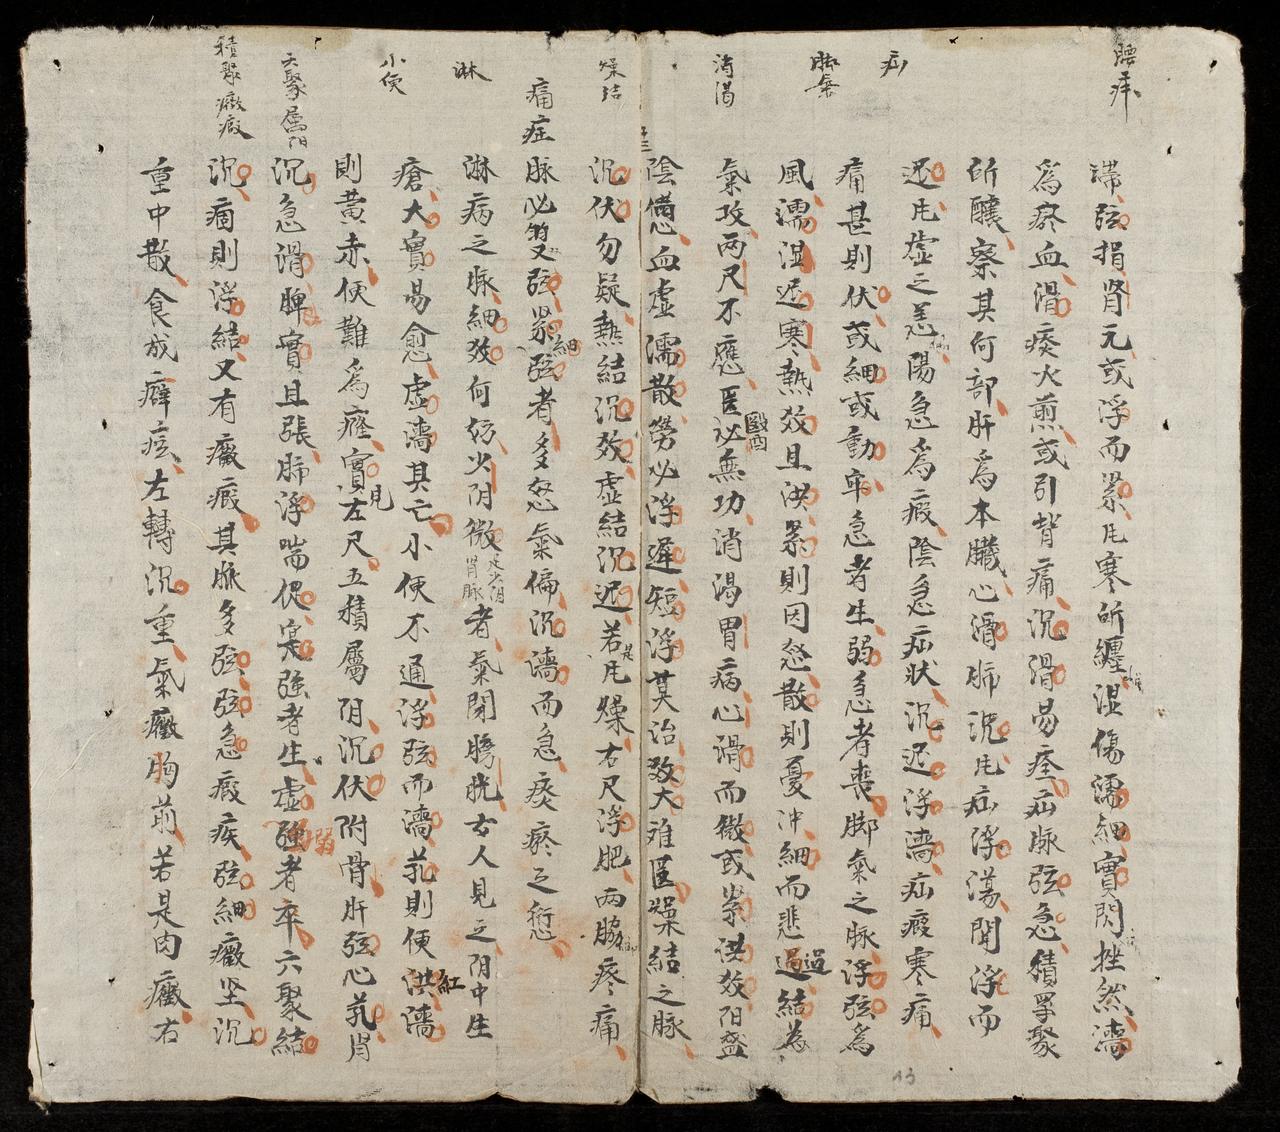 腰疼
滯弦損腎元或浮而緊凡寒所纏湿傷濡細實閃挫然濇
為瘀血滑痰火煎或引背痛沉滑易痊疝脈弦急積聚
所釀察其何部肝為本臟心滑肺沉凡疝浮蕩関浮而
疝
迟凡虛之恙陽急為瘕陰急疝狀沉迟浮濇疝瘕寒痛
痛甚則伏或細或動牢急者生弱急者喪脚氣之脉浮弦為
脚氣
風濡湿迟寒熱数且洪緊則因怒散則憂冲細而悲過結為
氣攻兩尺不應医必無功消渴胃病心滑而微或緊洪数阳盛
消渴
陰憊血虛濡散勞必浮遲短浮莫治数大难医燥結之脉
燥結
沉伏勿疑熱結沉数虛結沉迟若是凡燥右尺浮肥两脇疼痛
痛症脉必双弦緊細弦者多怒氣偏沉濇而急痰瘀之愆
淋
淋病之脉細数何妨少阴微者氣閉膀胱女人見之阴中生
足少阴腎脉
小便
瘡大實易愈虛濇其亡小便不通浮弦而濇芤則便洪濇
紅
則黃赤便難為癃實見左尺五積屬阴沉伏附骨肝弦心芤腎
六聚屬阳
沉急滑脾實且張肺浮喘促命強者生虛弱者卒六聚結
積聚癥瘕
沉痼則浮結又有癥瘕其脉多弦弦急瘕疾弦細癥坚沉
重中散食成癖痃左轉沉重氣癥胸前若是肉癥右